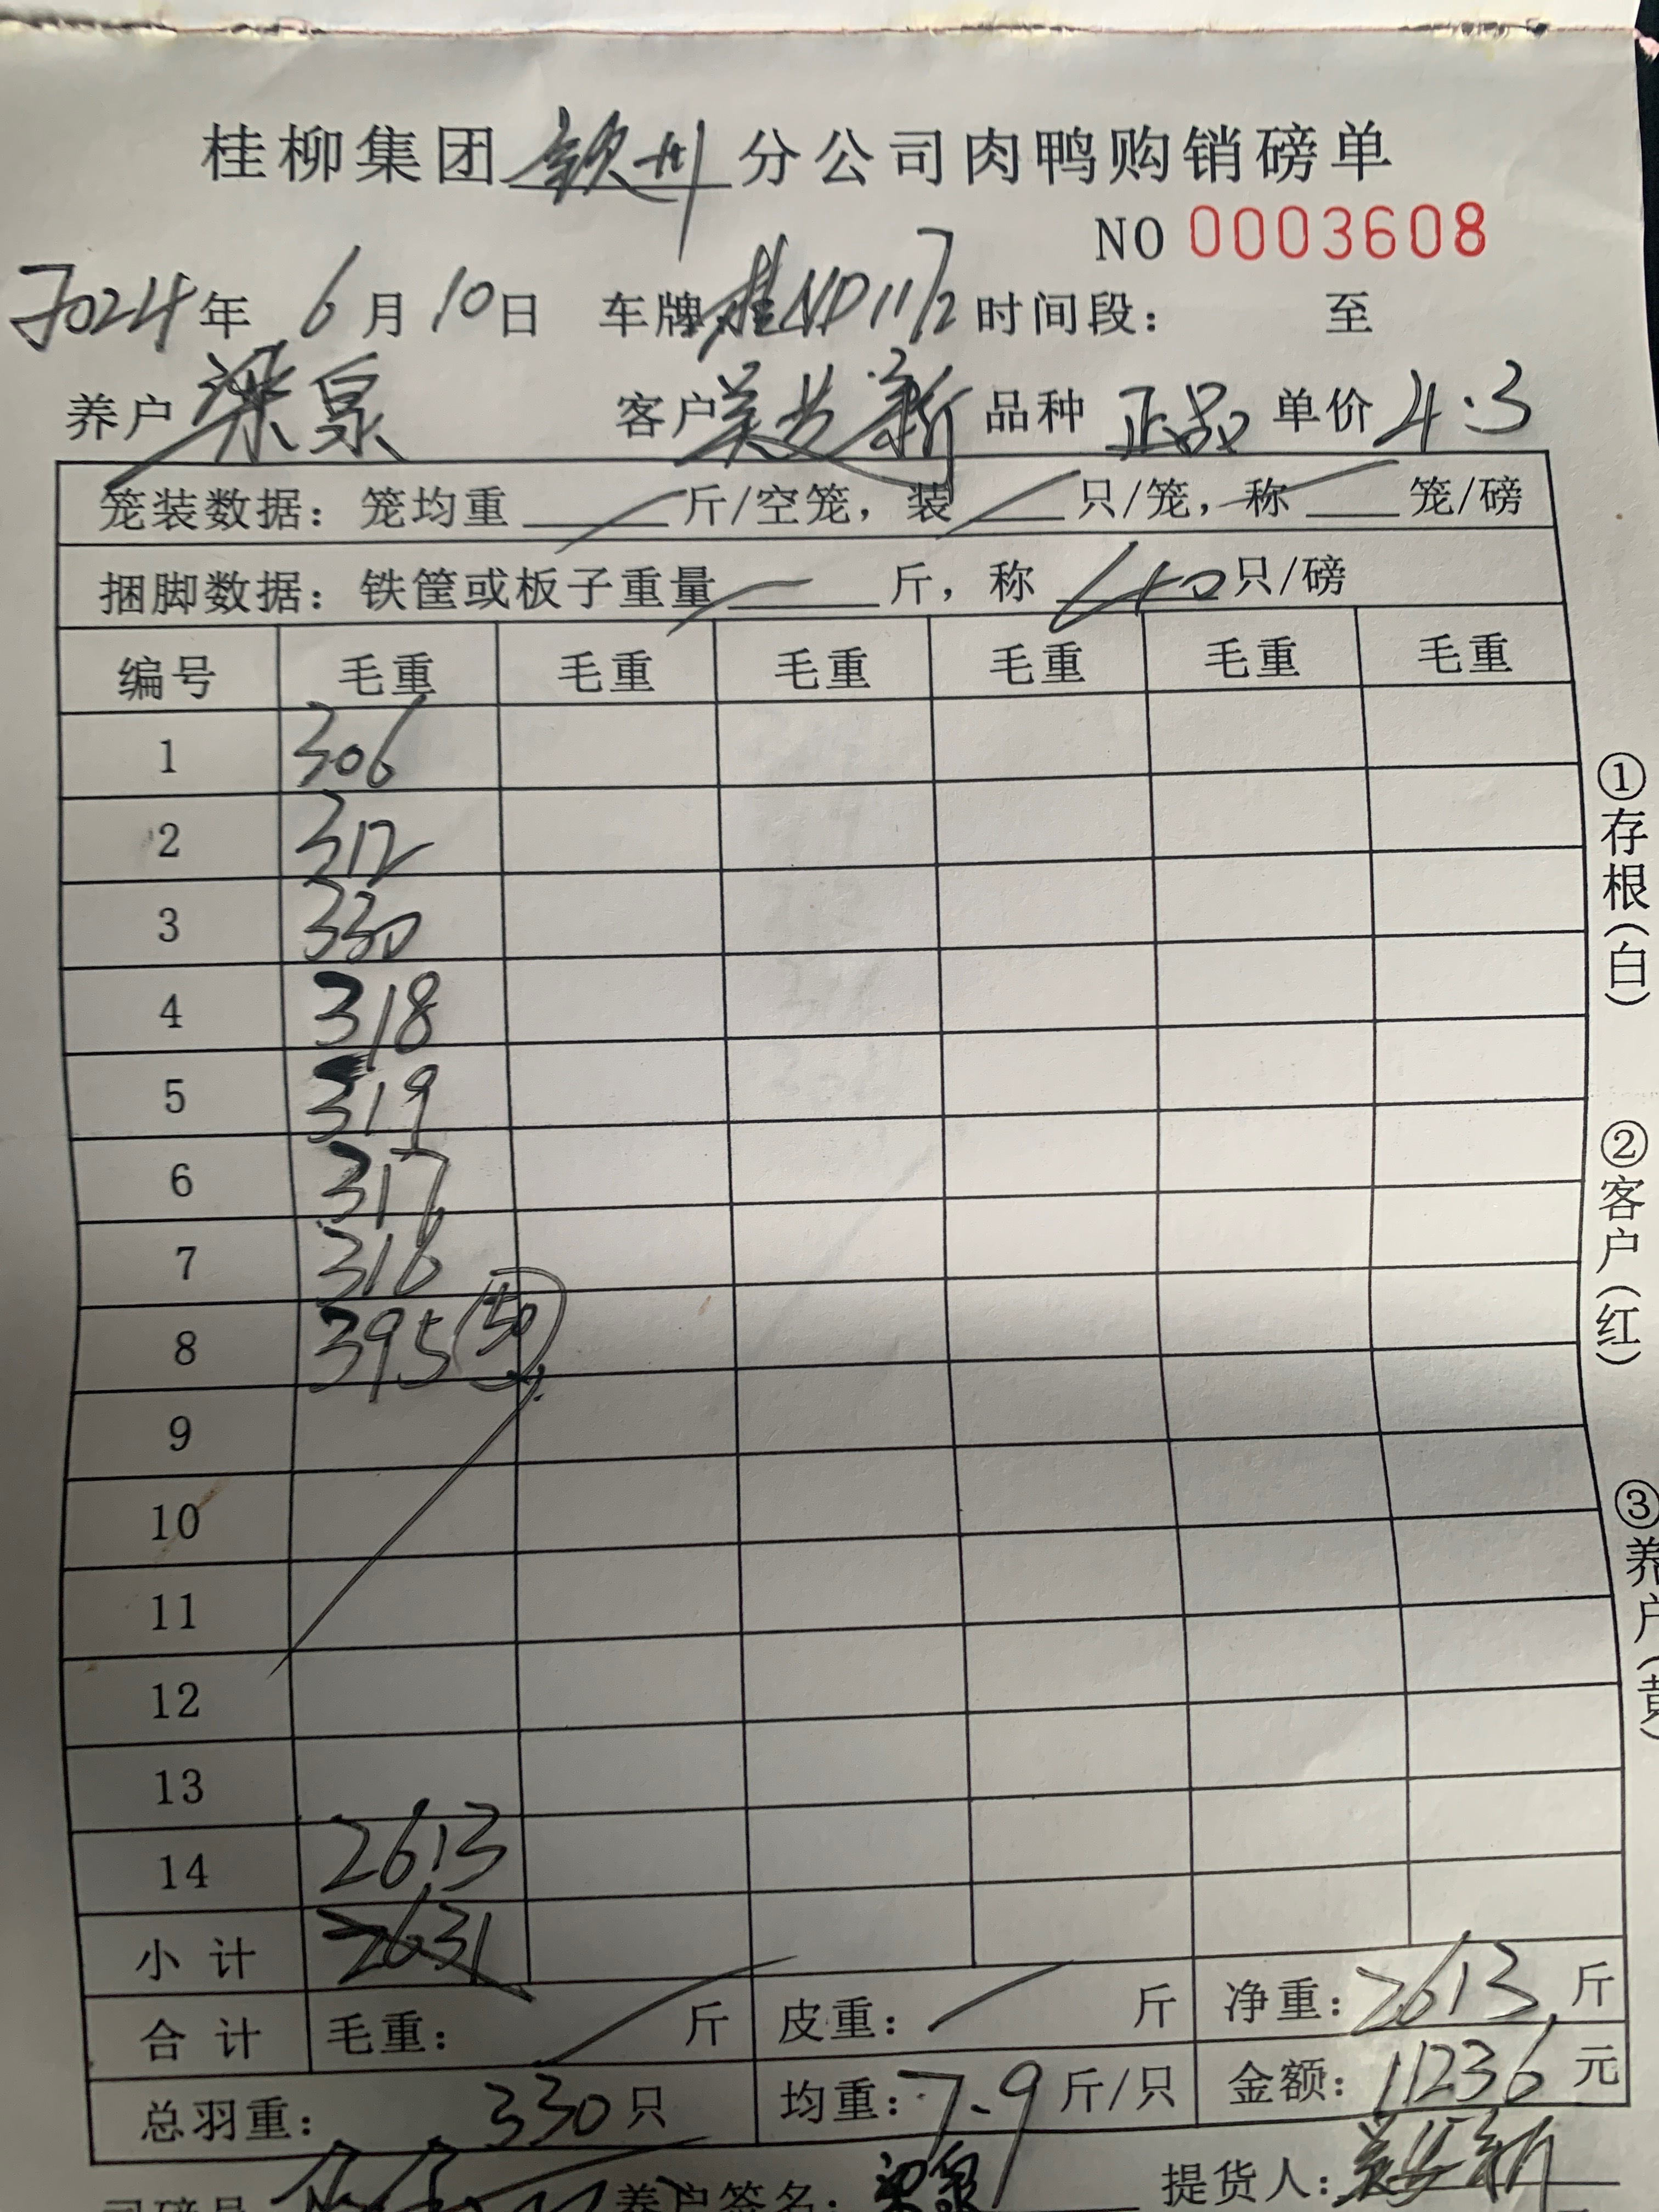 桂柳集团 钦州 分公司肉鸭购销磅单
NO 0003608
2024年 6月 10日 车牌 桂ND1172 时间段： 至
养户 梁泉 客户 新 品种 正品 单价 4.3
笼装数据：笼均重 斤/空笼，装 只/笼，称 笼/磅
捆脚数据：铁筐或板子重量 斤，称 40 只/磅
编号 毛重 毛重 毛重 毛重 毛重 毛重
1 306
2 312
3 330
4 318
5 319
6 317
7 316
8 395 50
9
10
11
12
13
14 2613
小计 2631
合计 毛重： 斤 皮重： 斤 净重：2613 斤
总羽重： 330只 均重：7.9斤/只 金额：11236元
养户签名：梁泉 提货人：
①存根(白)
②客户(红)
③养户(黄)